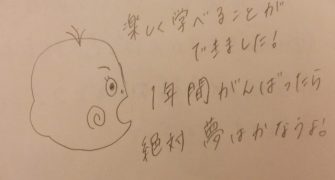 楽しく学べることが
できました!
1年間がんばったら
絶対 夢はかなうよ!